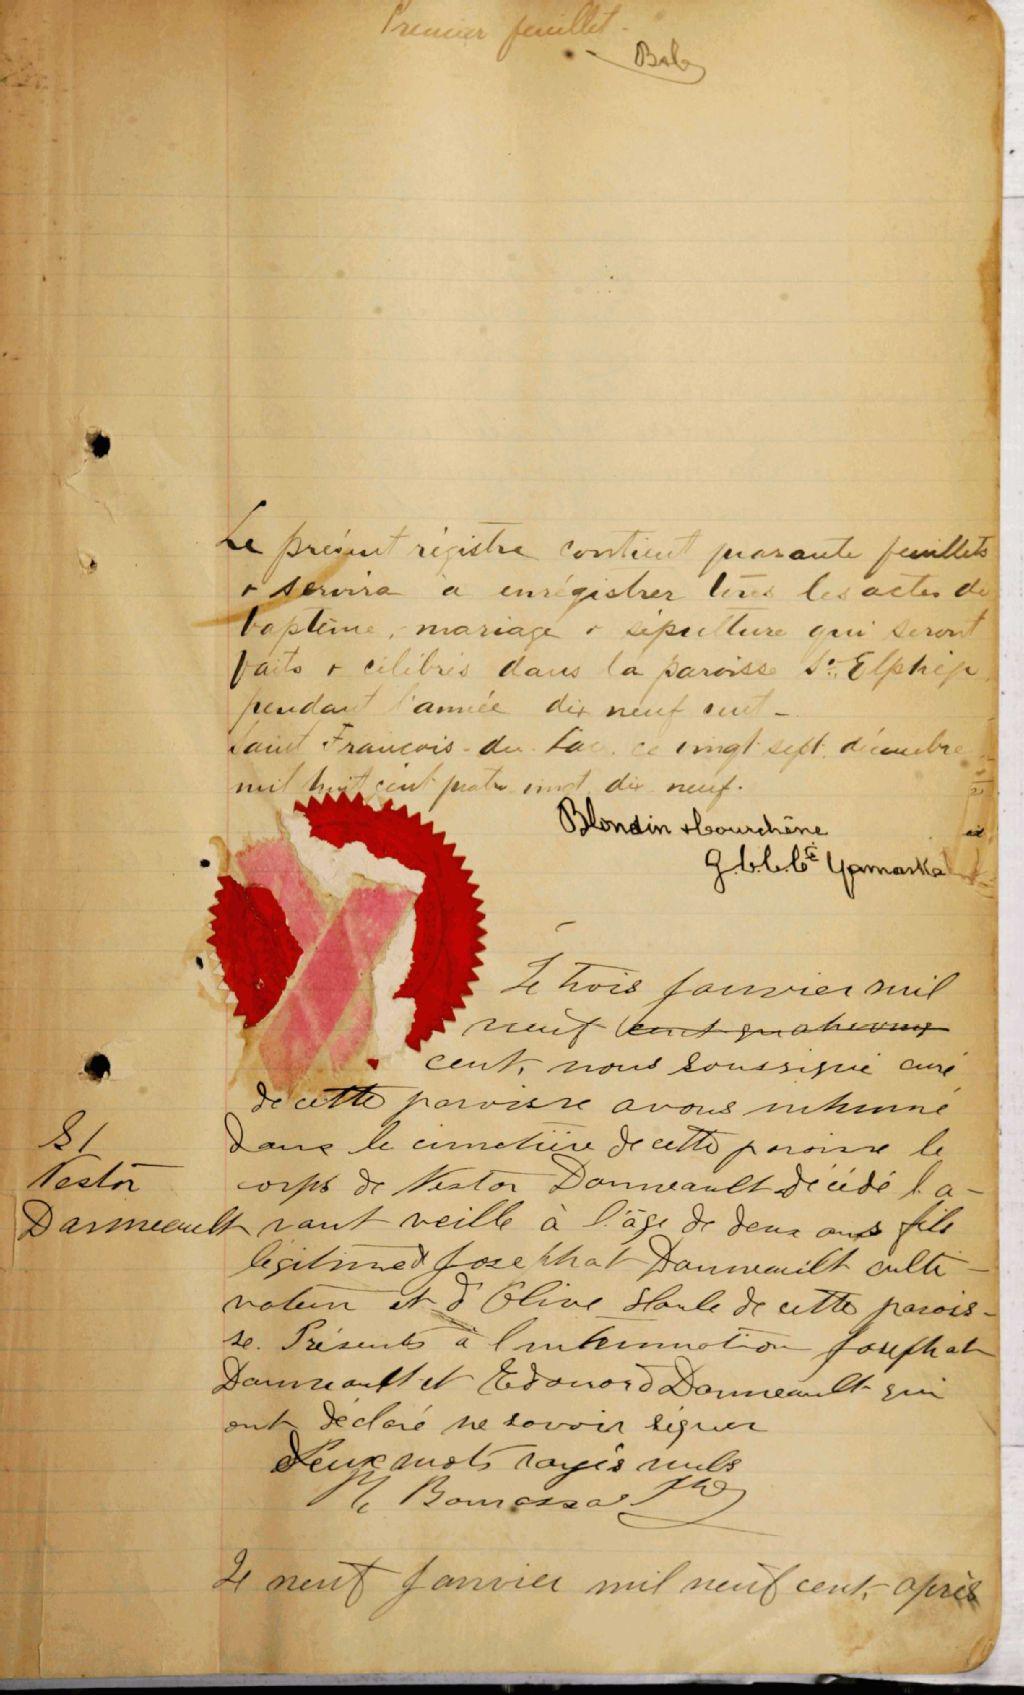 Premier feuillet.
Le présent régistre contient quarante feuillets
+ servira à enrégistrer tous les actes de
baptême, mariage + sépulture qui seront
faits + célébrés dans la paroisse St. Elphège
pendant l'année dix neuf cent -
Saint François-du-Lac, ce vingt sept décembre
mil huit cent quatre vingt dix neuf.
Blondin &
G.C.C. Yamaska
Le trois janvier mil
neuf cent quatrevingt
cent, nous soussigné curé
de cette paroisse avons inhumé
dans le cimetière de cette paroisse le
S1
Nestor
Danneault
corps de Nestor Danneault décédé l'a-
vant veille à l'âge de deux ans fils
légitime d Josephat Danneault culti-
vateur et d'Olive Houle de cette parois-
se. Présents à l'inhumation Josephat
Danneault et Edouard Danneault qui
ont déclaré ne savoir signer
Deux mots rayés nuls
Bourassa Ptre
Le neuf janvier mil neuf cent, après